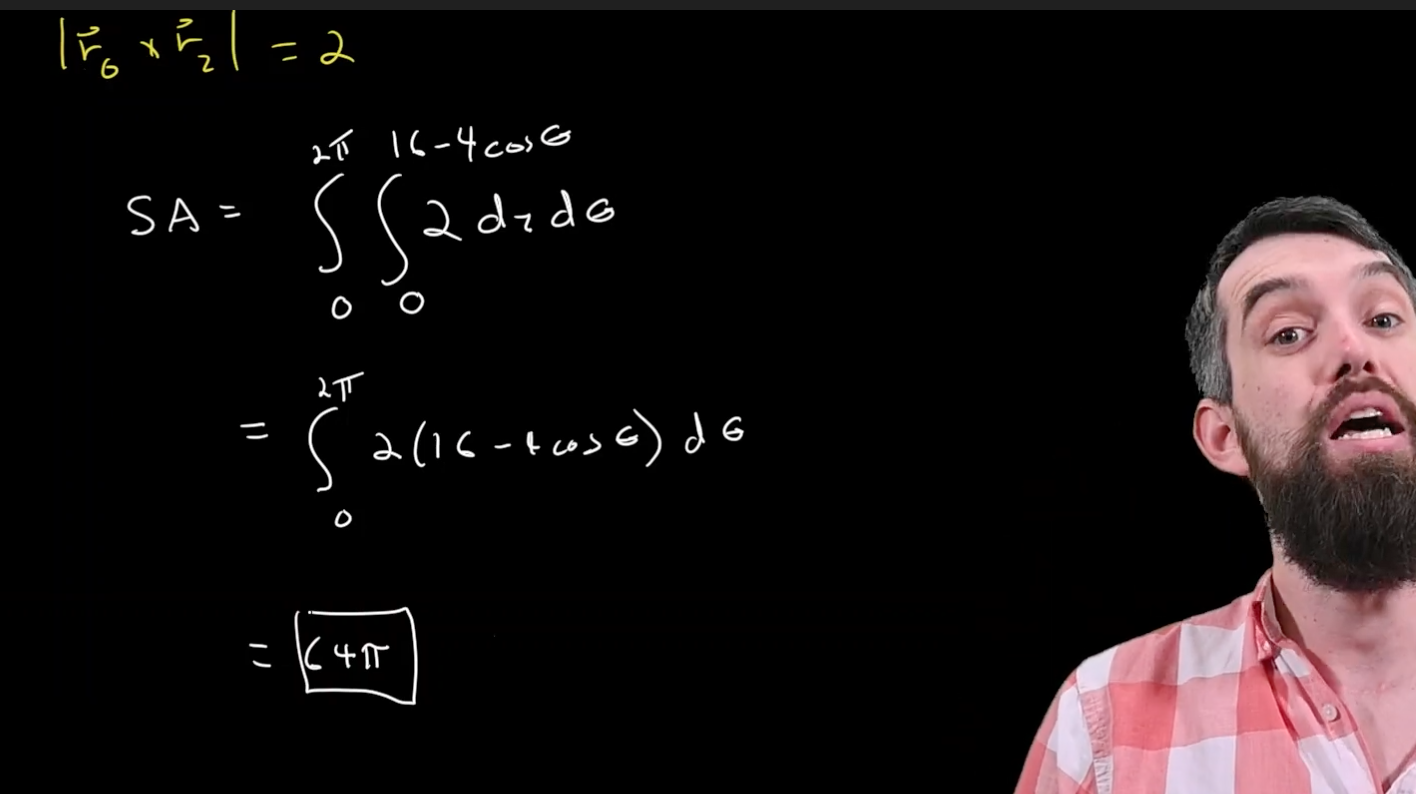 |r⃗_θ × r⃗_z| = 2
SA = ∫_0^{2π} ∫_0^{16-4cosθ} 2 dz dθ
= ∫_0^{2π} 2(16-4cosθ) dθ
= 64π